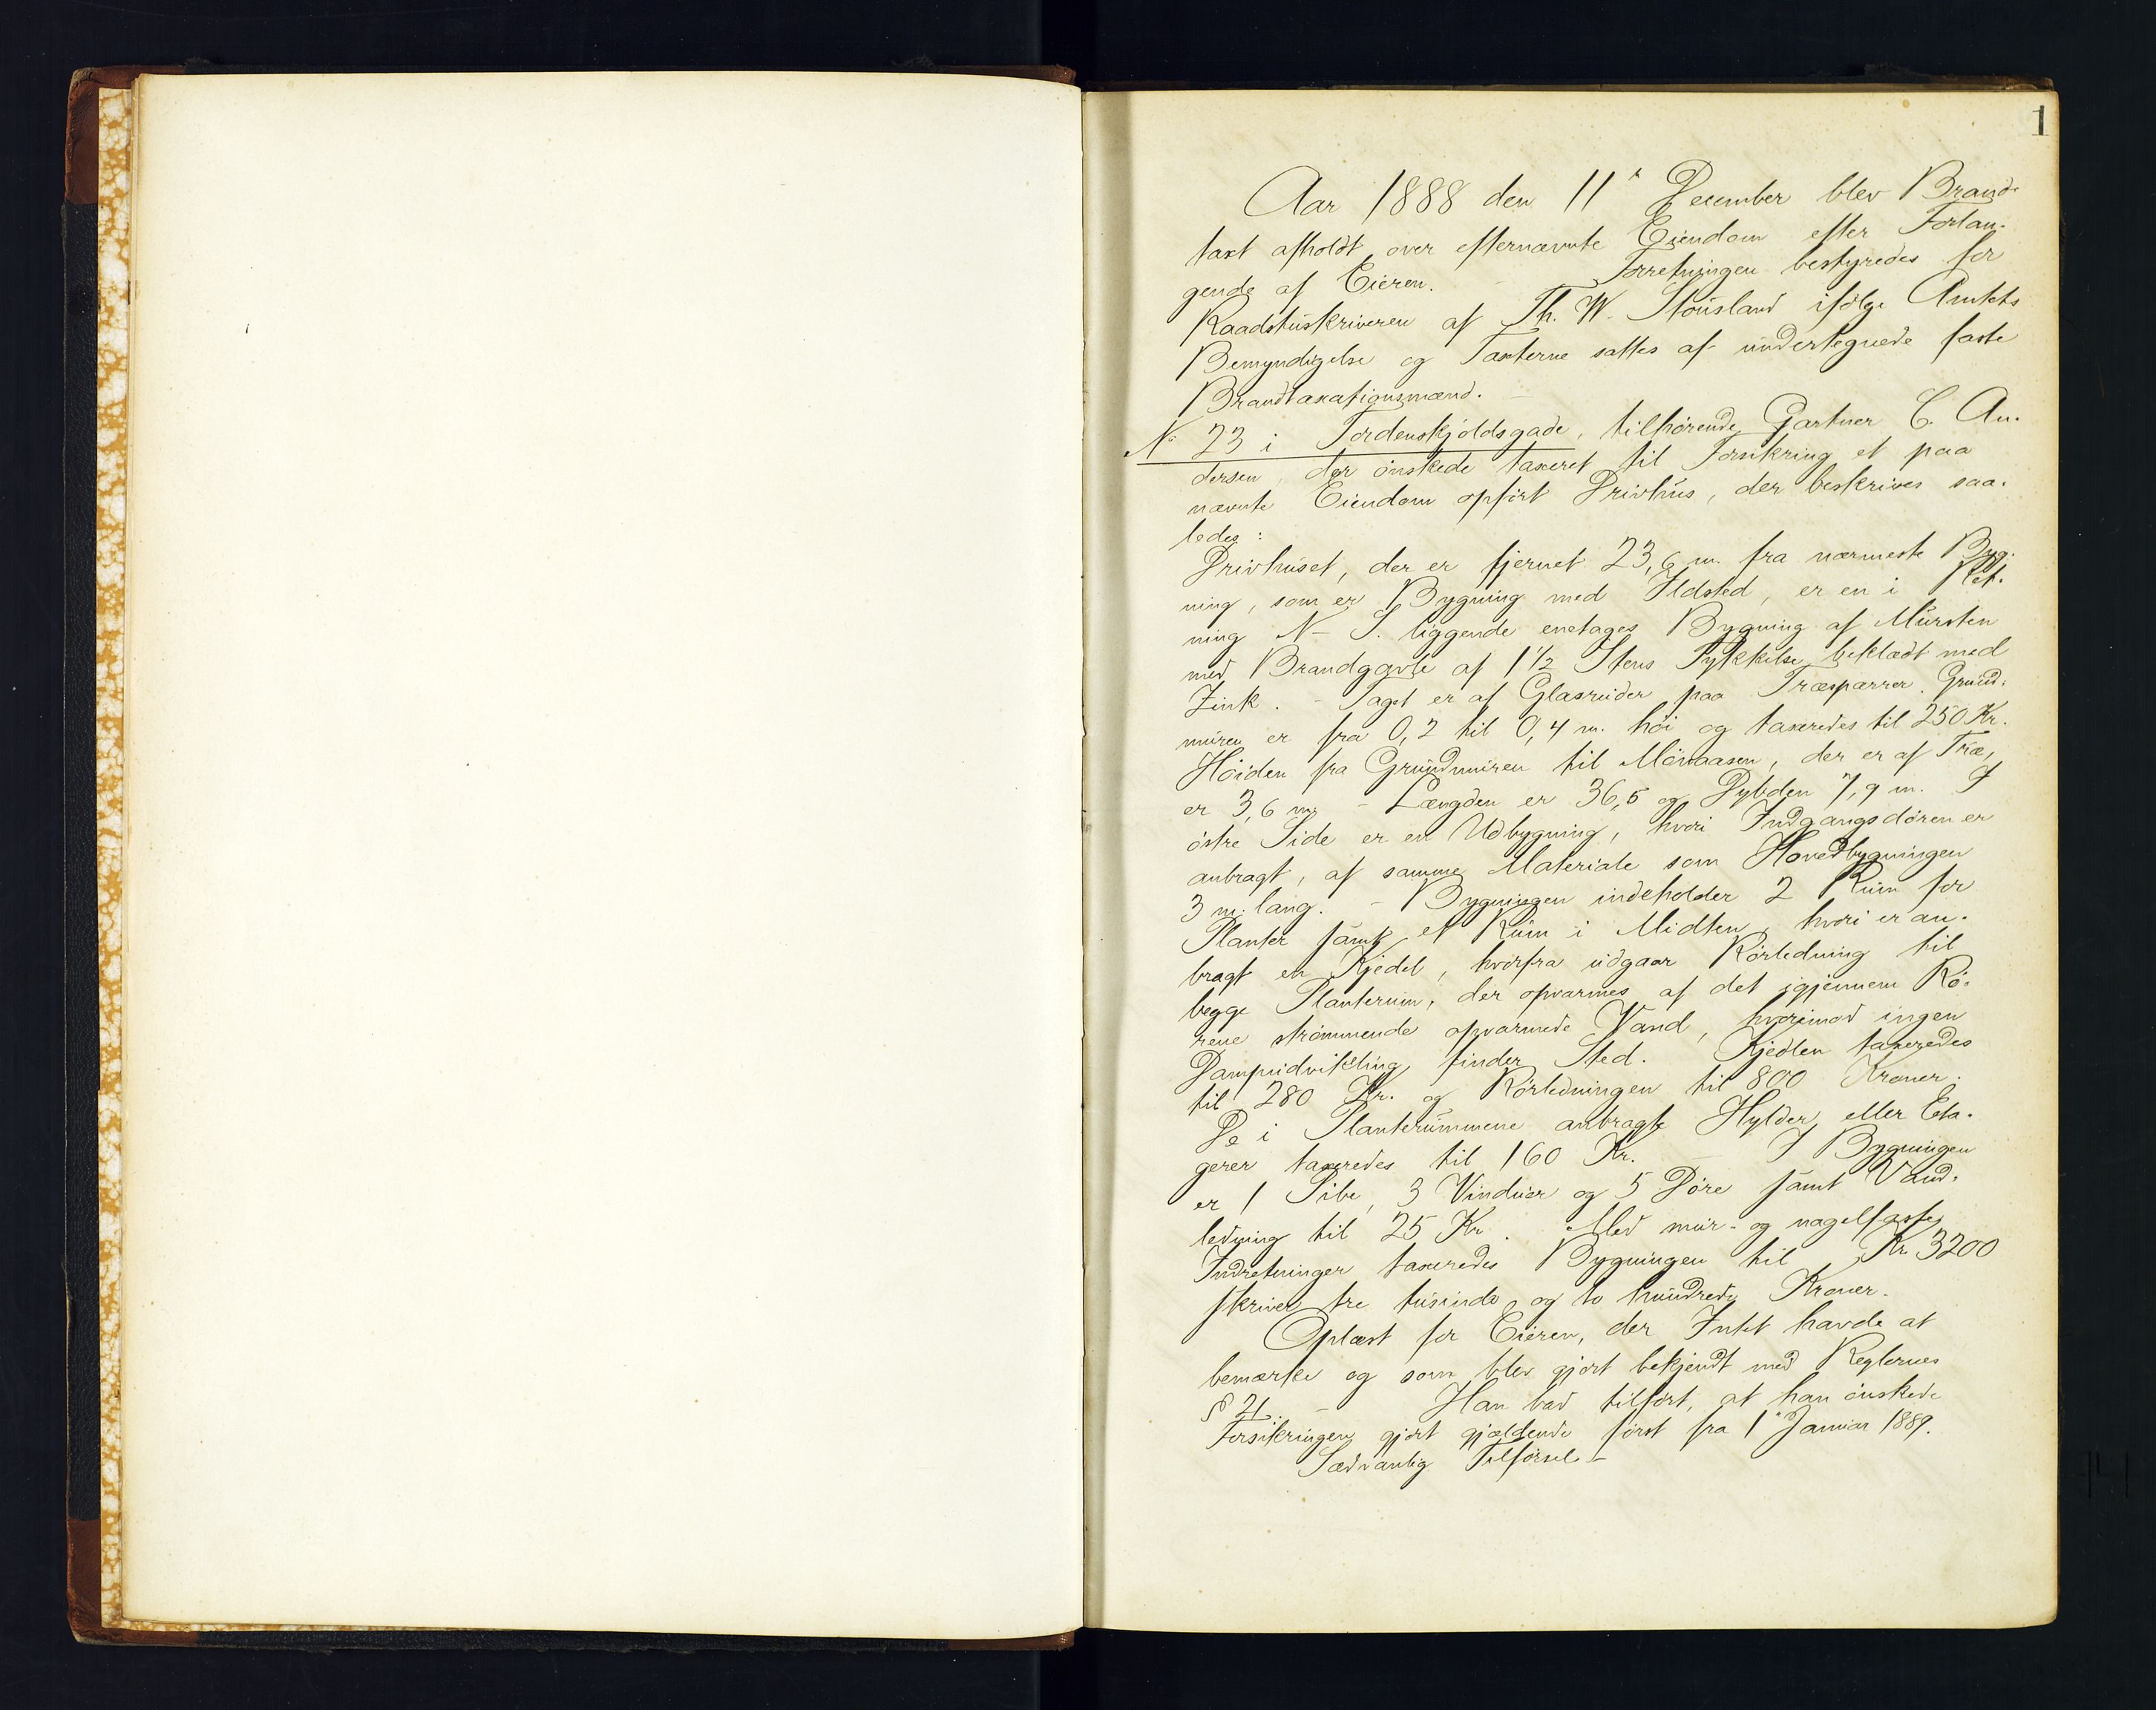 1
Aar 1888 den 11te December blev Brand-
taxt afholdt over efternævnte Eiendom efter Forlan-
gende af Eieren. - Forretningen bestyredes for
Raadstuskriveren af Th. W. Stousland ifølge Amtets
Bemyndigelse og Taxterne sattes af undertegnede faste
Brandtaxationsmænd. -
No 23 i Tordenskjoldsgade, tilhørende Gartner C. An-
dersen, der ønskede taxeret til Forsikring et paa
nævnte Eiendom opført Drivhus, der beskrives saa-
ledes:
Drivhuset, der er fjernet 23,6 m. fra nærmeste Byg-
ning, som er Bygning med Ildsted, er en i Ret-
ning N - S. liggende enetages Bygning af Mursten
med Brandgavle af 1 1/2 Stens Tykkelse beklædt med
Zink. - Taget er af Glasruder paa Træsparrer. Grund-
muren er fra 0,2 til 0,4 m. høi og taxeredes til 250 Kr.
Høiden fra Grundmuren til Mønaasen, der er af Træ,
er 3,6 m. - Længden er 36,5 og Dybden 7,9 m. I
østre Side er en Udbygning, hvori Indgangsdøren er
anbragt, af samme Materiale som Hovedbygningen
3 m. lang. - Bygningen indeholder 2 Rum for
Planter samt et Rum i Midten, hvori er an-
bragt en Kjedel, hvorfra udgaar Rørledning til
begge Planterum, der opvarmes af det igjennem Rø-
rene strømmende opvarmede Vand, hvorimod ingen
Dampudvikling finder Sted. Kjedlen taxeredes
til 280 Kr. og Rørledningen til 800 Kroner.
De i Planterummene anbragte Hylder eller Eta-
gerer taxeredes til 160 Kr. - I Bygningen
er 1 Pibe, 3 Vinduer og 5 Døre samt Vand-
ledning til 25 Kr. Med mur- og nagelfaste
Indretninger taxeredes Bygningen til Kr 3200
skriver tre tusinde og to hundrede Kroner.
Oplæst for Eieren, der Intet havde at
bemærke og som blev gjort bekjendt med Reglernes
§ 21. - Han bad tilført, at han ønskede
Forsikringen gjort gjældende først fra 1te Januar 1889.
Sædvanlig Tilførsel -